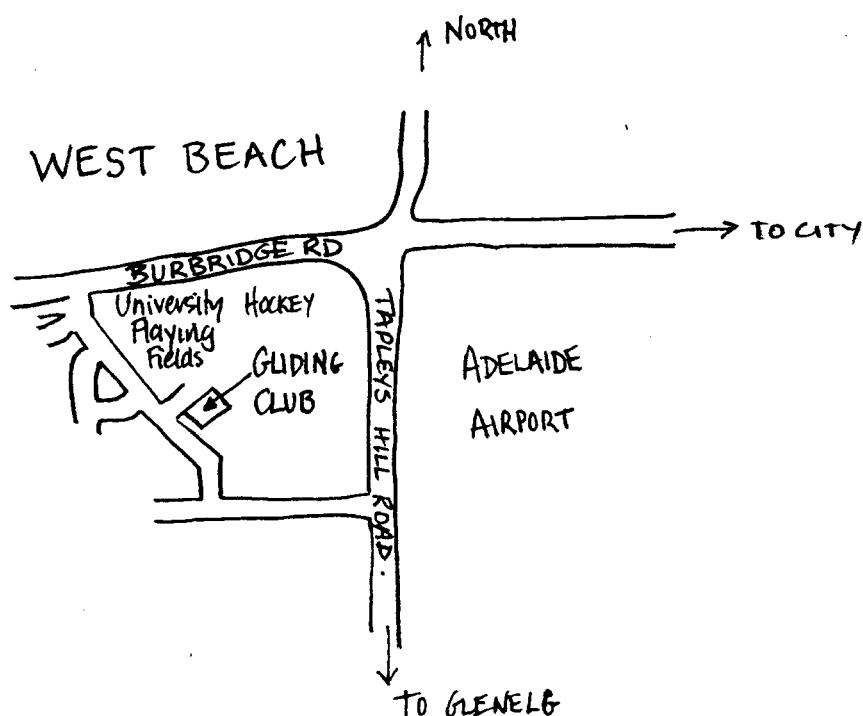 NORTH
WEST BEACH
TO CITY
BURBRIDGE RD
University Hockey
Playing
Fields
GLIDING
CLUB
TAPLEYS HILL ROAD.
ADELAIDE
AIRPORT
TO GLENELG